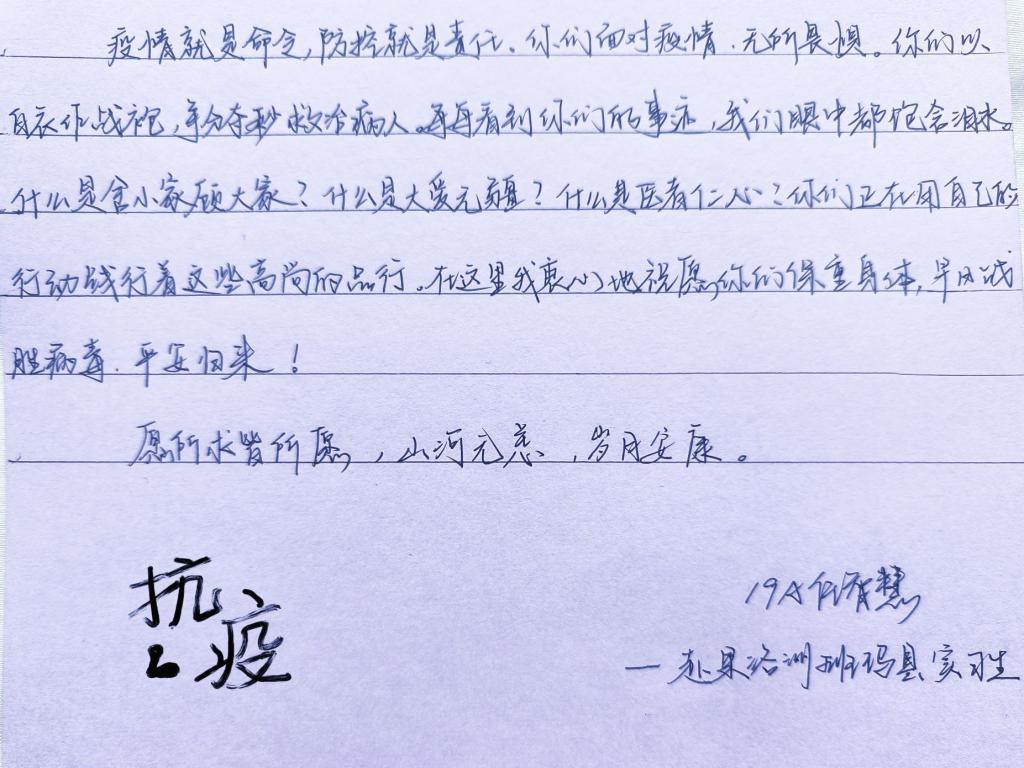 疫情就是命令,防控就是责任。你们面对疫情.无所畏惧。你们以
白衣作战袍,争分夺秒救治病人。每每看到你们的事迹,我们眼中都饱含泪水。
什么是舍小家顾大家?什么是大爱无疆?什么是医者仁心?你们正在用自己的
行动践行着这些高尚的品行。在这里我衷心地祝愿你们保重身体,早日战
胜病毒.平安归来!
愿所求皆所愿,山河无恙,岁月安康。
抗
疫
19A任智慧
—赴果洛洲班玛县实习生